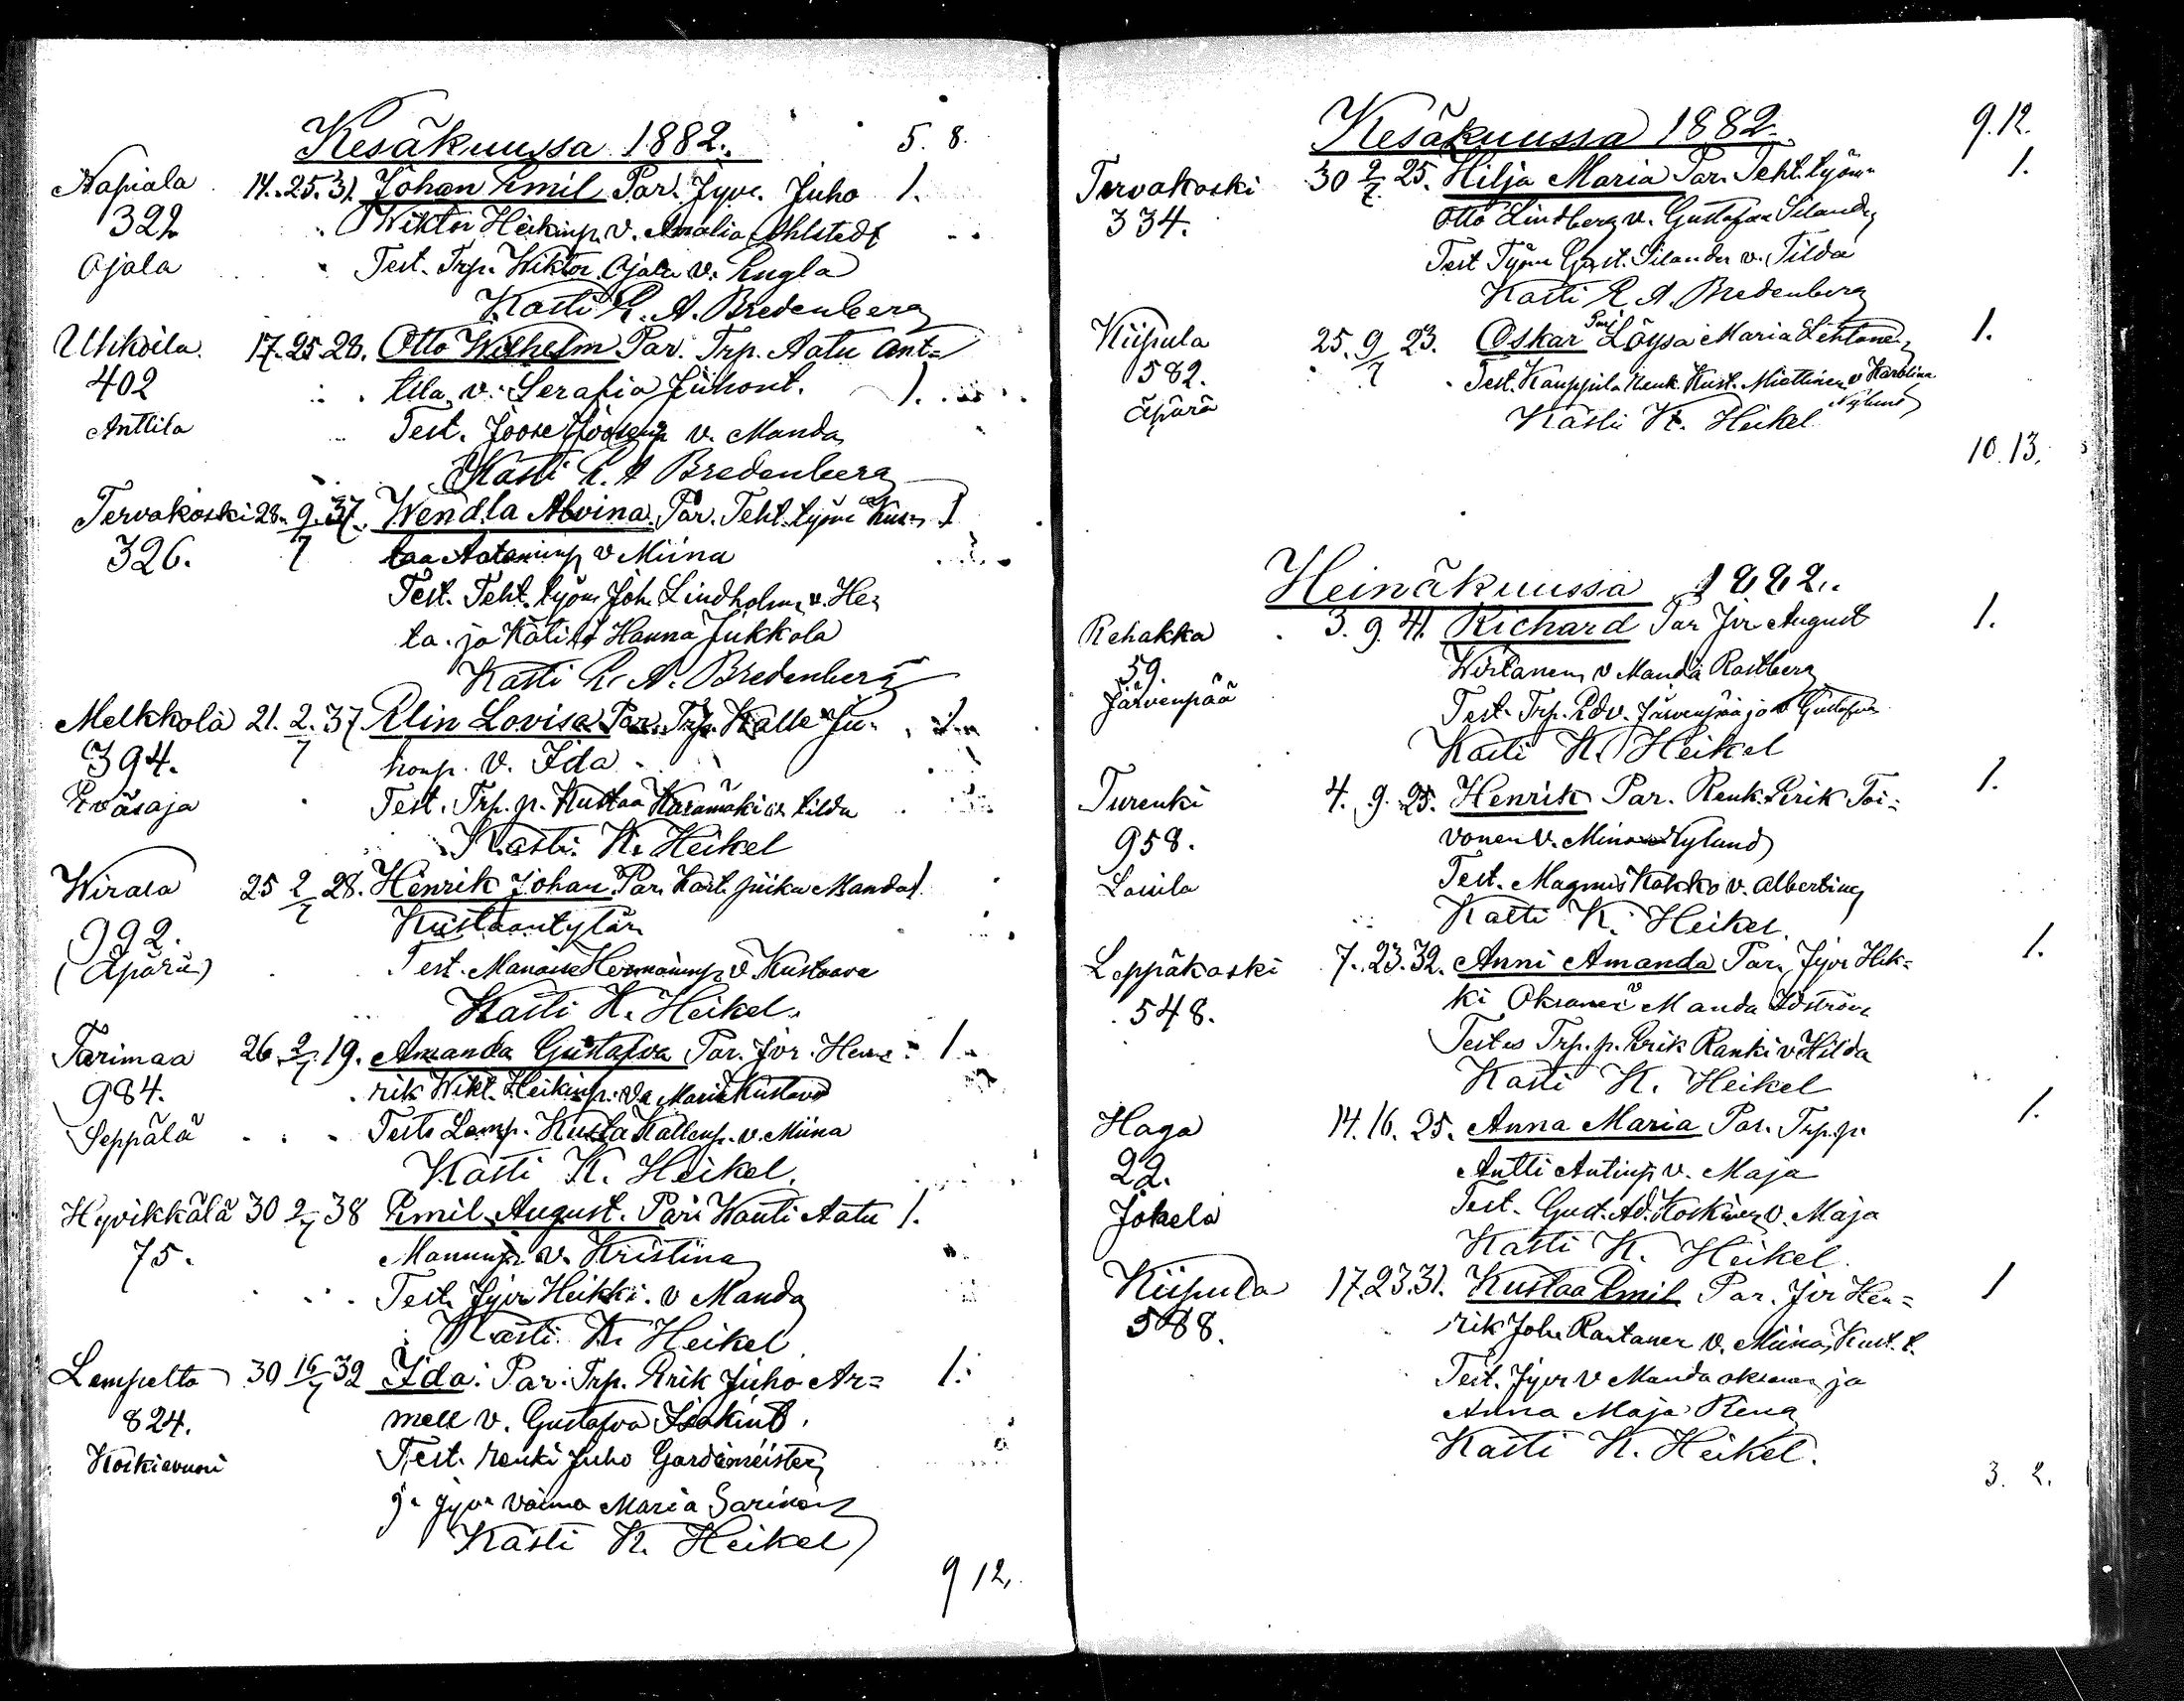 Kesäkuussa 1882. 5. 8.
Napiala 14. 25. 31. Johan Emil Par. Jyve. Juho 1.
322 Wiktor Heikinp. v. Amalia Ahlstedt
Ojala Test. Trp. Wiktor Ojala v. Engla
Kasti E. A. Bredenberg
Uhkoila 17. 25 28. Otto Wilhelm Par. Trp. Aatu Ant=
402 tila, v. Serafia Juhont. 1.
Anttila Test. Joose Joosenp v. Manda
Kasti E. A Bredenberg
Tervakoski 28. 9/7. 37. Wendla Alvina. Par. Teht. työm Kus= 1
326. taa Aataminp v Miina
Test. Teht. työm Joh. Lindholm v. He=
ta. ja Kätilö Hanna Jukkola
Kasti E. A. Bredenberg
Melkkola 21. 2/7. 37. Elin Lovisa Par. Trp. Kalle Ju= 1
394. honp. v. Ida
Eväsoja Test. Trp. p. Kustaa Karamäki v. tilda
Kasti. K. Heikel
Wirala 25 2/7 28. Henrik Johan Par. Karl. piika Manda 1.
992. Kustaantytär
(Äpärä) Test. Manasse Hermaninp. v. Kustaava
Kasti K. Heikel.
Tarimaa 26. 2/7. 19. Amanda Gustafva Par. Jvr. Hen= 1.
984. rik Wikt. Heikinp. v. Maria Kustava
Seppälä Test. Lamp. Kusta Kallenp. v. Miina
Kasti K. Heikel.
Hyvikkälä 30 2/7 38 Emil August. Par. Wouti Aatu 1.
75. Manninp. v. Kristina
Test. Jyvr Heikki. v Manda
Kasti. K. Heikel
Lempelto 30 16/7 32 Ida. Par. Trp. Erik Juho Ar= 1.
824. mell v. Gustafva Isakint.
Koskivuori Test. renki Juho Gardemeister
ja Jyvr vaimo Maria
Kasti K. Heikel
9 12.
Kesäkuussa 1882. 9. 12.
Tervakoski 30 2/7. 25. Hilja Maria Par. Teht. työm 1.
334. Otto Lindberg v. Gustafva Silander
Test Työm Gust. Silander v. Tilda
Kasti E. A. Bredenberg
Kiipula 25. 9/7 23. Oskar Löysä Maria Lehtonen 1.
582. Test. Kauppila renk. Kust. Miettinen v Karolina
Äpärä Kasti K. Heikel Nylund
10. 13.
Heinäkuussa 1882.
Rehakka 3. 9. 41. Richard Par Jvr August 1.
59. Wirtanen, v Manda Rostberg
Järvenpää Test. Trp. Edv. Järvenpää ja v Gustafva
Kasti K. Heikel
Turenki 4. 9. 25. Henrik Par. Renk. Erik Toi= 1.
958. vonen v. Mina Nylund
Laurila Test. Magnus Kokko v. Albertina
Kasti K. Heikel.
Leppäkoski 7. 23. 32. Anni Amanda Par. Jyvr Hik= 1.
548. ki Oksanen v Manda Idström
Testes Trp. p. Erik Ranki v Hilda
Kasti K. Heikel
Haga 14. 16. 25. Anna Maria Par. Trp. p. 1.
22. Antti Antinp v. Maja
Jokela Test. Gust. Ad. Koskinen v. Maja
Kasti K. Heikel.
Kiipula 17. 23. 31. Kustaa Emil Par. Jvr Hen= 1
588. rik Joh. Rantanen v. Miina, Kust. t.
Test. Jyvr v Manda oksanen ja
Anna Maja
Kasti K. Heikel.
3. 2.